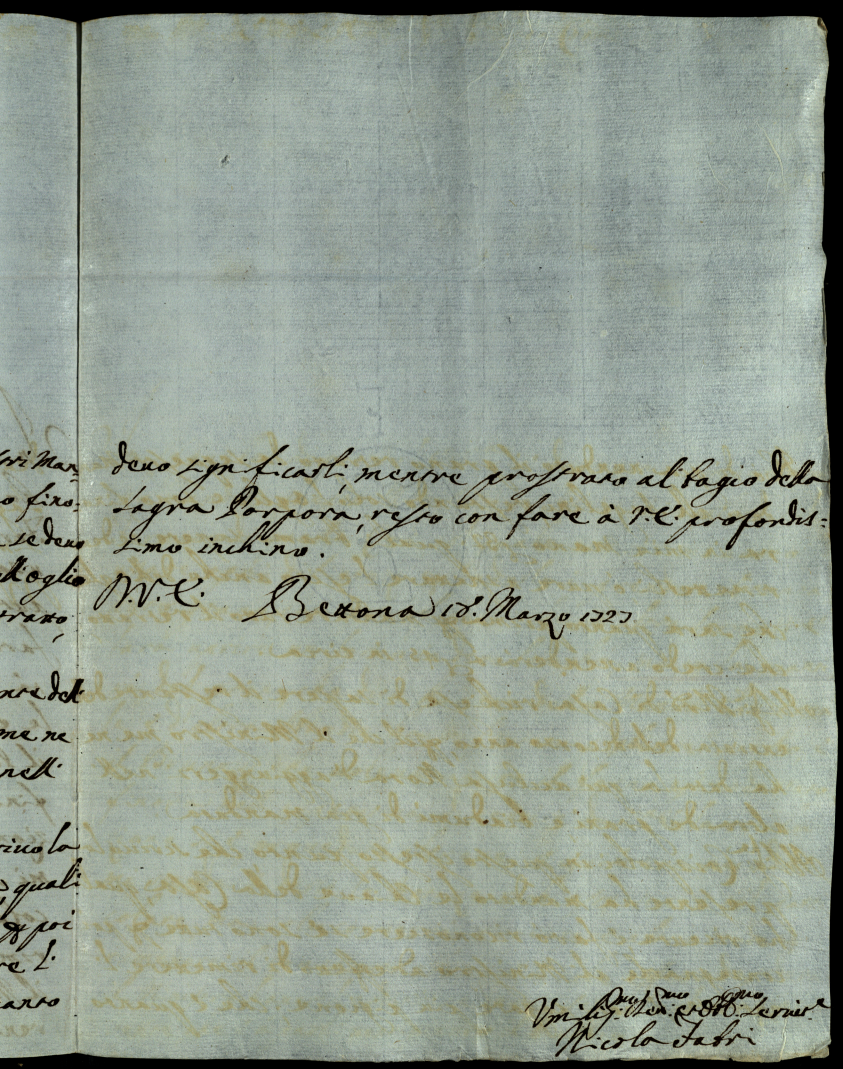 tri Man=
o fino=
se devo
all'oglio
tratto,
nte dell'
me ne
nell'
rivo la
quali
et poi
re l'
anto
devo significarli, mentre prostrato al bagio della
Sagra Porpora, resto con fare à V.E. profondis=
simo inchino.
D.V.E. Bettona 18. Marzo 1727
Umiliss.mo Dev.mo et Obb.mo Servit.e
Nicola Fabri